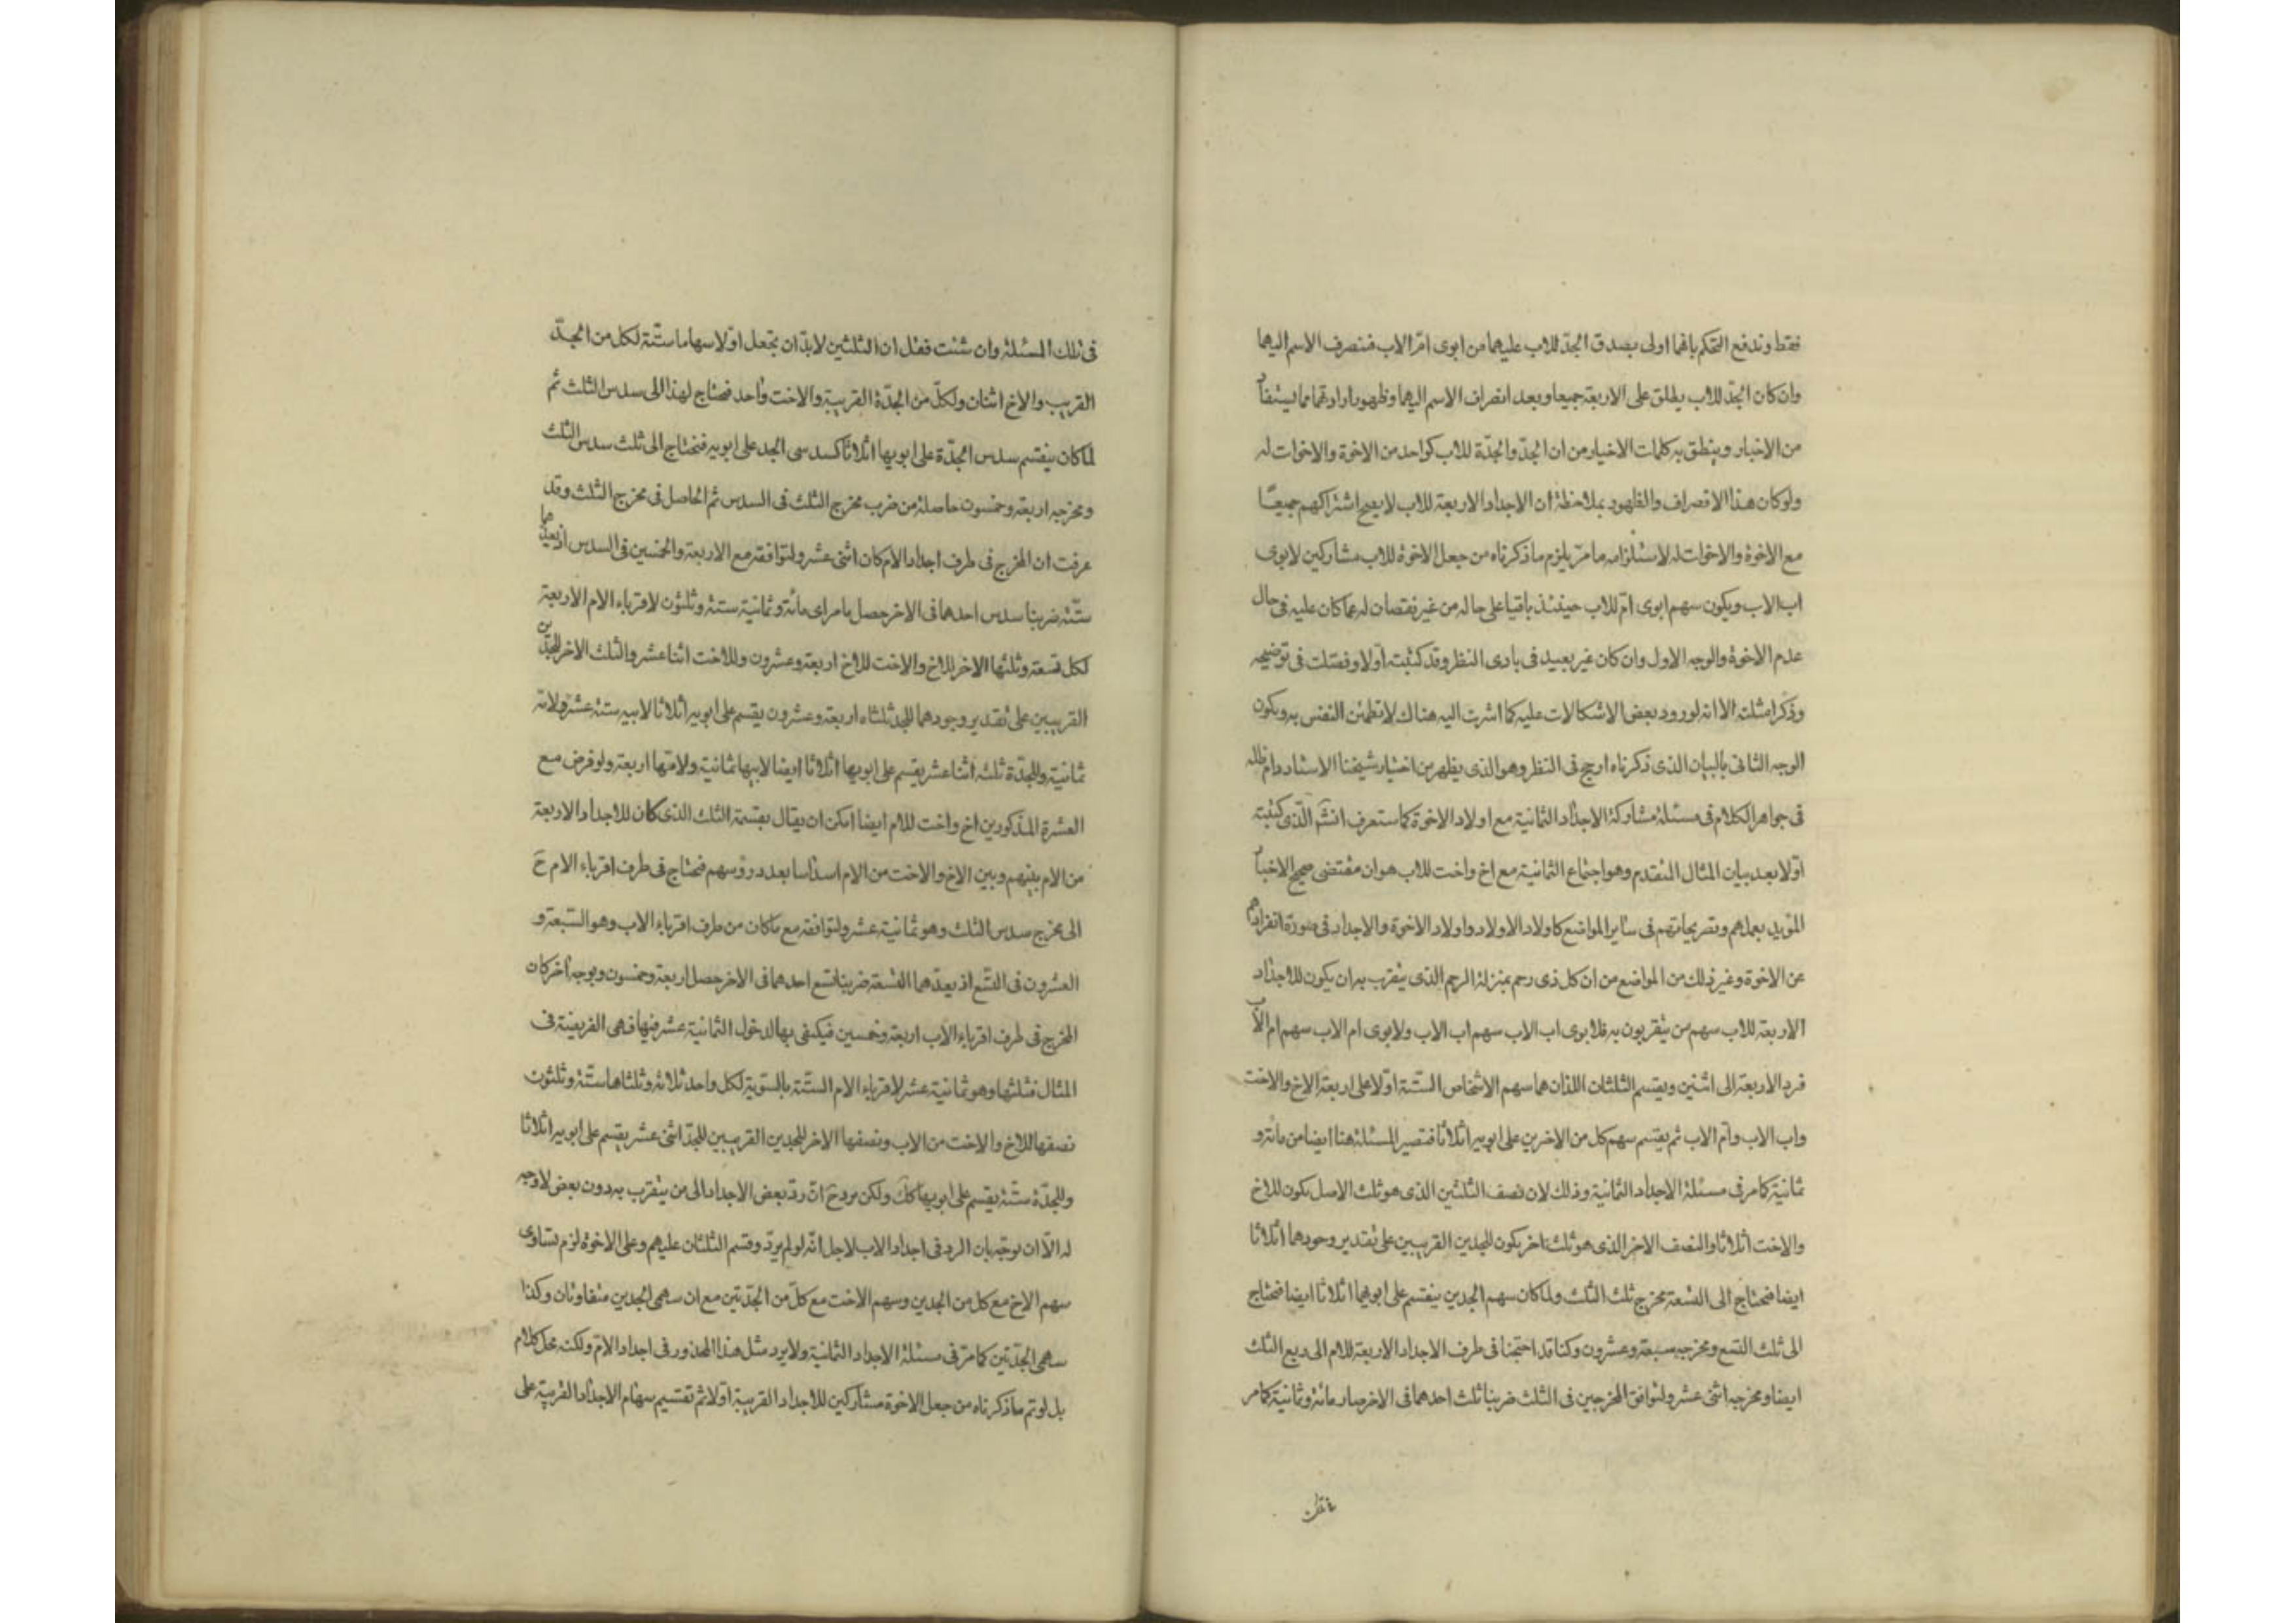 فقط وندفع التحكم بانهما اولى بصدق الجدّ للاب عليهما من ابوى امّ الاب فنصرف الاسم اليهما
وان كان الجدّ للاب يطلق على الاربعة جميعا وبعد انصراف الاسم اليهما وظهور ارادتهما مما يستفاد
من الاخبار وينطق به كلمات الاخيار من ان الجدّ والجدّة للاب كواحد من الاخوة والاخوات له
ولو كان هذا الانصراف والظهور بملاحظة ان الاجداد الاربعة للاب لا يصح اشتراكهم جميعًا
مع الاخوة والاخوات له لاستلزامه ما مرّ يلزم ما ذكرناه من جعل الاخوة للاب مشاركين لابوى
اب الاب ويكون سهم ابوى امّ للاب حينئذ باقيا على حاله من غير نقصان له عما كان عليه فى حال
عدم الاخوة والوجه الاول وان كان غير بعيد فى بادى النظر وقد كتبته اولا وفصّلت فى توضيحه
وذكر امثلته الا انه لورود بعض الاشكالات عليه كما اشرت اليه هناك لا تطمئن النفس به ويكون
الوجه الثانى بالبيان الذى ذكرناه ارجح فى النظر وهو الذى يظهر من اختيار شيخنا الاستاد دام ظله
فى جواهر الكلام فى مسئلة مشاركة الاجداد الثمانية مع اولاد الاخوة كما ستعرف انشَم الذى كتبته
اوّلا بعد بيان المثال المتقدم وهو اجتماع الثمانية مع اخ واخت للاب هو ان مقتضى صحيح الاخبار
المؤيد بعملهم وتصريحاتهم فى ساير المواضع كاولاد الاولاد واولاد الاخوة والاجداد فى صورة انفرادهم
عن الاخوة وغير ذلك من المواضع من ان كل ذى رحم بمنزلة الرحم الذى يتقرب به ان يكون للاجداد
الاربعة للاب سهم من يتقربون به فلابوى اب الاب سهم اب الاب ولابوى ام الاب سهم ام الاب
فرد الاربعة الى اثنين ويقسم الثلثان اللذان هما سهم الاشخاص الستّة اوّلا على اربعة الاخ والاخت
واب الاب وام الاب ثم يقسم سهم كل من الاخرين على ابويه اثلاثا فتصير المسئلة هنا ايضا من مائة و
ثمانية كما مر فى مسئلة الاجداد الثمانية وذلك لان نصف الثلثين الذى هو ثلث الاصل يكون للاخ
والاخت اثلاثا والنصف الاخر الذى هو ثلث اخر يكون للجدين القريبين على تقدير وجودهما اثلاثا
ايضا فنحتاج الى التسعة مخرج ثلث الثلث ولما كان سهم الجدين ينقسم على ابويهما اثلاثا ايضا فنحتاج
الى ثلث التسع ومخرجه سبعة وعشرون وكنا قد احتجنا فى طرف الاجداد الاربعة للام الى ربع الثلث
ايضا ومخرجه اثنى عشر ولتوافق المخرجين فى الثلث ضربنا ثلث احدهما فى الاخر صار مائة وثمانية كما مر
فى تلك المسئلة وان شئت فقل ان الثلثين لا بدّ ان تجعل اوّلا سهاما ستّة لكل من الجدّ
القريب والاخ اثنان ولكلّ من الجدّة القريبة والاخت واحد فنحتاج لهذا الى سدس الثلث ثم
لما كان ينقسم سدس الجدّة على ابويها اثلاثا كسدسى الجد على ابويه فنحتاج الى ثلث سدس الثلث
ومخرجه اربعة وخمسون حاصلة من ضرب مخرج الثلث فى السدس ثم الحاصل فى مخرج الثلث وقد
عرفت ان المخرج فى طرف اجداد الام كان اثنى عشر ولتوافقه مع الاربعة والخمسين فى السدس اذ يعدّهما
ستّة ضربنا سدس احدهما فى الاخر حصل ما مر اى مائة وثمانية ستة وثلثون لاقرباء الام الاربعة
لكل تسعة وثلثها الاخر للاخ والاخت للاخ اربعة وعشرون وللاخت اثنا عشر والثلث الاخر للجدّين
القريبين على تقدير وجودهما للجد ثلثاه اربعة وعشرون يقسم على ابويه اثلاثا لابيه ستة عشر ولامّه
ثمانية وللجدّة ثلثه اثنا عشر يقسم على ابويها اثلاثا ايضا لابيها ثمانية ولامّها اربعة ولو فرض مع
العشرة المذكورين اخ واخت للام ايضا امكن ان يقال بقسمة الثلث الذى كان للاجداد الاربعة
من الام بينهم وبين الاخ والاخت من الام اسداسا بعدد رؤسهم فنحتاج فى طرف اقرباء الام حَ
الى مخرج سدس الثلث وهو ثمانية عشر ولتوافقه مع ما كان من طرف اقرباء الاب وهو السّبعة و
العشرون فى التّسع اذ يعدّهما التسعة ضربنا تسع احدهما فى الاخر حصل اربعة وخمسون وبوجه اخر كان
المخرج فى طرف اقرباء الاب اربعة وخمسين فيكتفى بها لدخول الثمانية عشر فيها فهى الفريضة فى
المثال فثلثها وهو ثمانية عشر لاقرباء الام الستّة بالسّوية لكل واحد ثلاثة وثلثاها ستّة وثلثون
نصفها للاخ والاخت من الاب ونصفها الاخر للجدين القريبين للجدّ اثنى عشر يقسم على ابويه اثلاثا
وللجدّة ستّة يقسم على ابويها ككَ ولكن يرد حَ انّ ردّ بعض الاجداد الى من يتقرب به دون بعض لا وجه
له الّا ان يوجّه بان الرد فى اجداد الاب لاجل انّه لو لم يردّ وقسم الثلثان عليهم وعلى الاخوة لزم تساوى
سهم الاخ مع كل من الجدين وسهم الاخت مع كلّ من الجدّتين مع ان سهمى الجدين متفاوتان وكذا
سهمى الجدّتين كما مرّ فى مسئلة الاجداد الثمانية ولا يرد مثل هذا المحذور فى اجداد الامّ ولكنه محل كلام
بل لو تم ما ذكرناه من جعل الاخوة مشاركين للاجداد القريبة اوّلا ثم تقسيم سهام الاجداد القريبة على